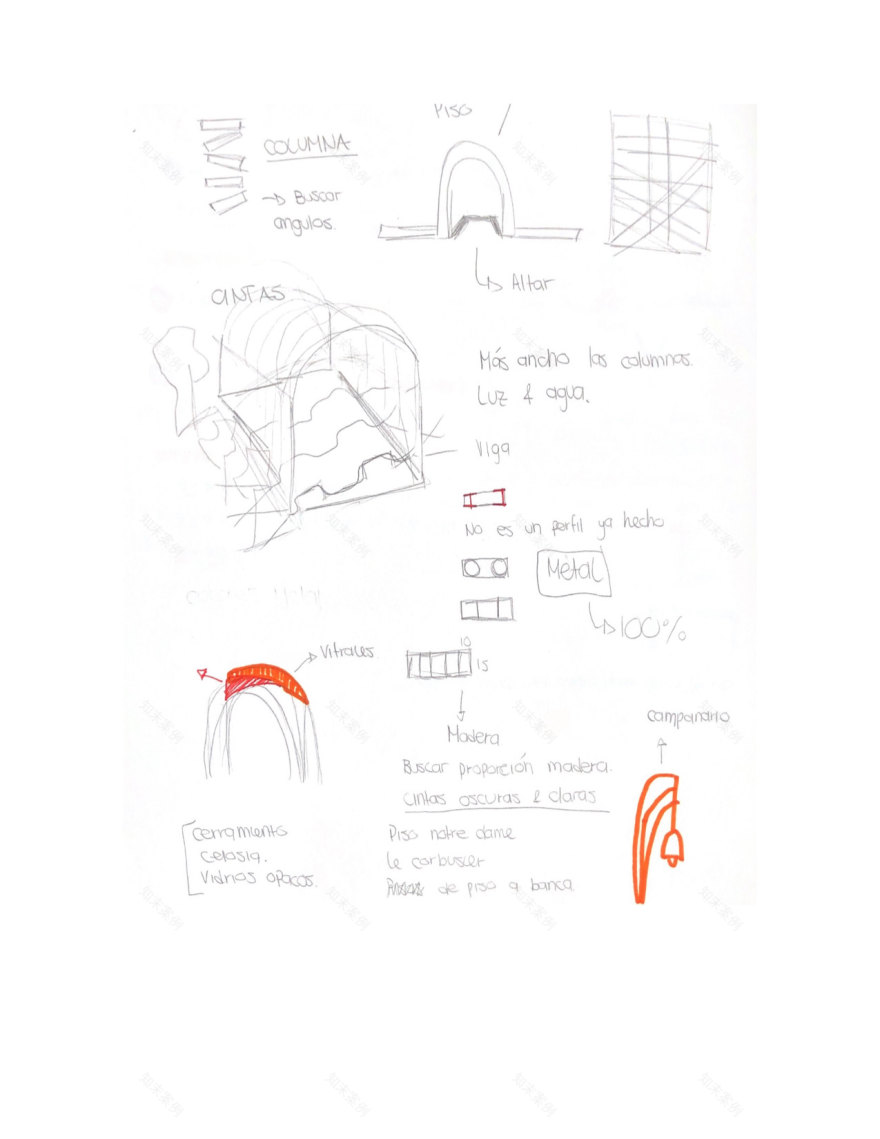 PISO
COLUMNA
→ Buscar
angulos.
Altar
CINTAS
Más ancho las columnas.
Luz & agua.
Viga
No es un perfil ya hecho
Metal
100%
Vitrales
10
15
Madera
Buscar proporción madera.
cintas oscuras & claras
campanario
cerramiento
celosia.
Vidrios opacos.
Piso notre dame
le corbuseer
de piso a banca
知末案例